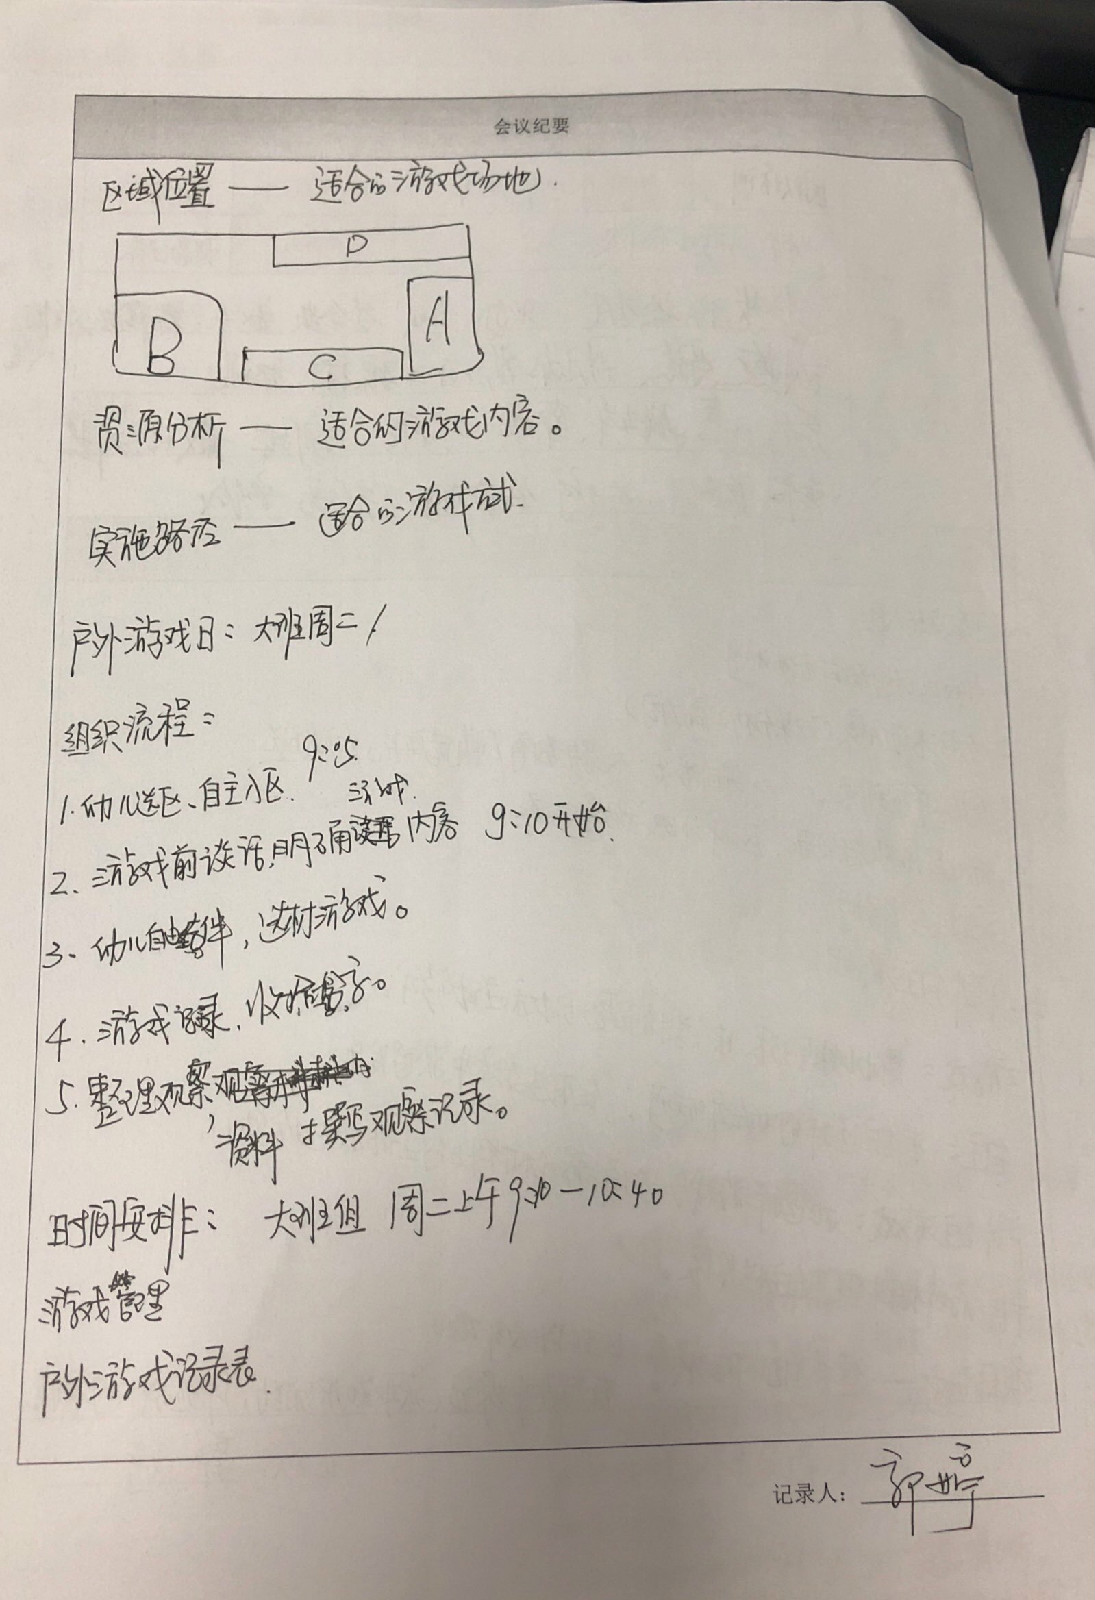 会议纪要
区域位置 —— 适合的游戏场地.
D
A
B
C
资源分析 —— 适合的游戏内容。
实施路径 —— 适合的游戏方式.
户外游戏日：大班周二/
组织流程：
1.幼儿选区、自主入区. 9:05
游戏
2.游戏前谈话,明确内容 9:10开始.
3、幼儿自由结伴,选材游戏。
4.游戏记录,收拾
5.整理观察
资料 撰写观察记录。
时间安排：大班组 周二上午9:10-10:40
游戏管理
户外游戏记录表.
记录人：郭婷